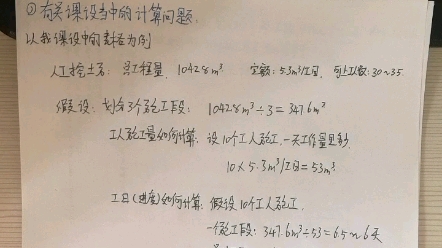 ② 有关课设当中的计算问题.
以我课设中的数据为例
人工挖土方: 总工程量 1042.8m³ 定额: 5.3m³/工日, 可上人数: 30~35
假设: 划分3个施工段: 1042.8m³÷3=347.6m³
工人施工量如何计算: 设10个工人施工, 一天工作量是多少
10×5.3m³/工日=53m³
工日(进度)如何计算: 假设10个工人施工,
一个施工段: 347.6m³÷53=6.5≈6天